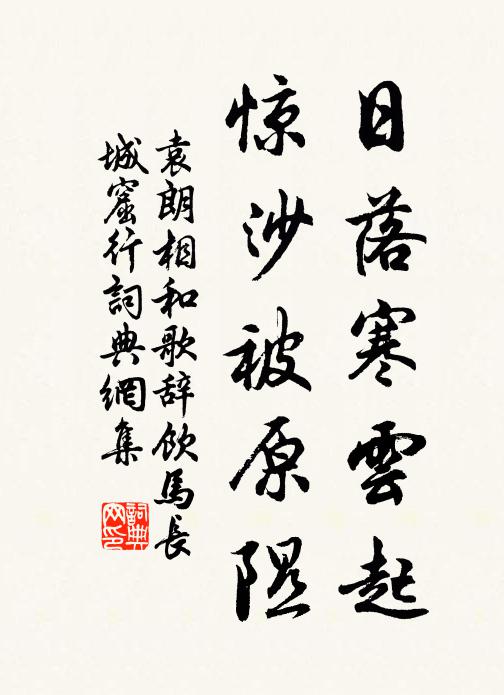 日落寒雲起
惊沙被原隰
袁朗相和歌辞飲馬長
城窟行詞典網集
詞典
网印